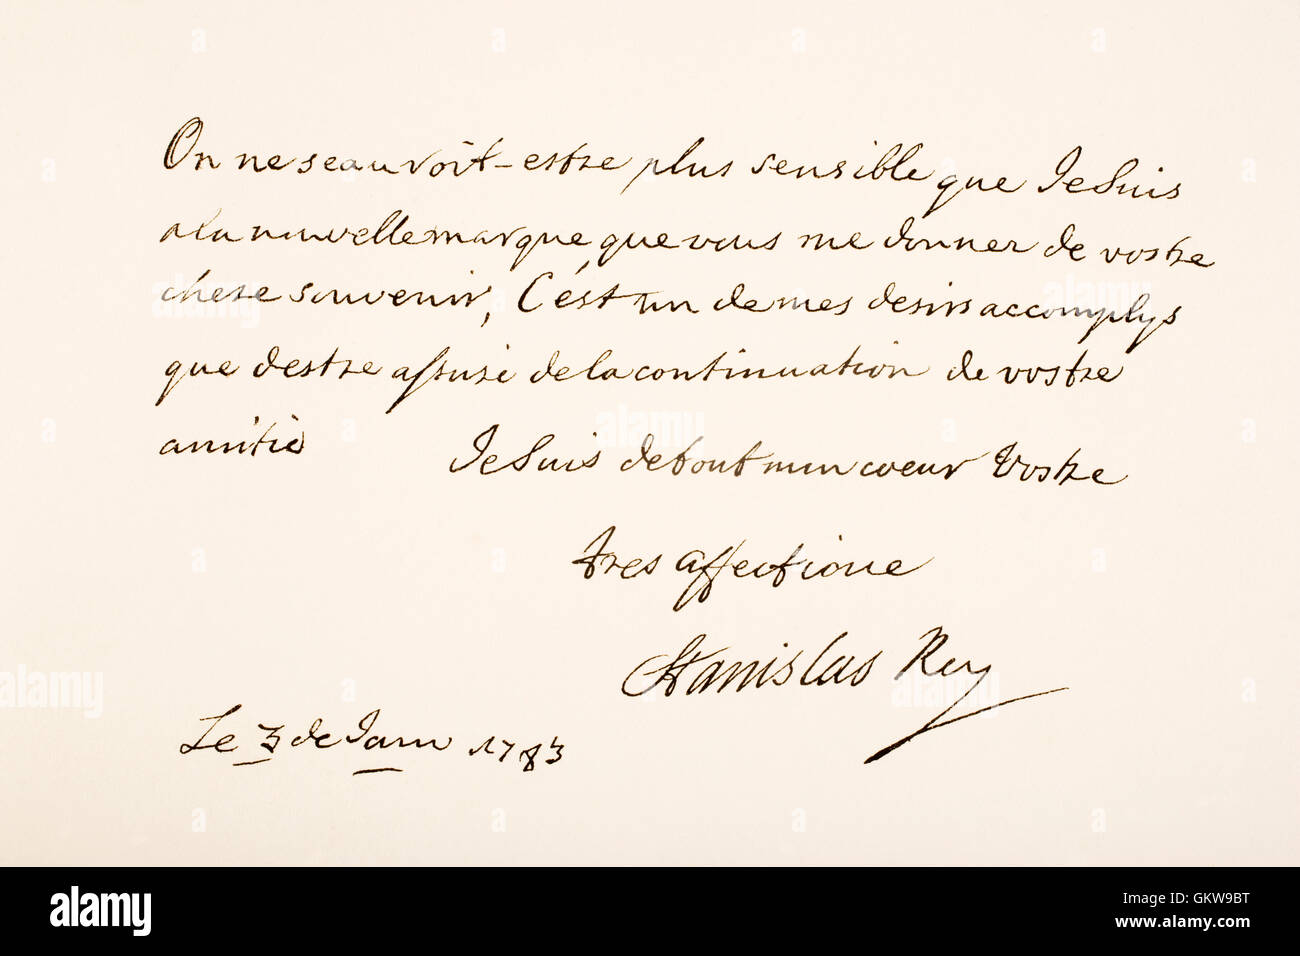 On ne seauroit-estre plus sensible que Je Suis
a la nouvelle marque, que vous me donner de vostre
chere souvenir, C'ést un de mes desirs accomplys
que destre assuré de la continuation de vostre
amitié
Je Suis de tout mon coeur Vostre
tres affectione
Stanislas Rey
Le 3 de Janv 1783
alamy
Image ID: GKW9BT
www.alamy.com